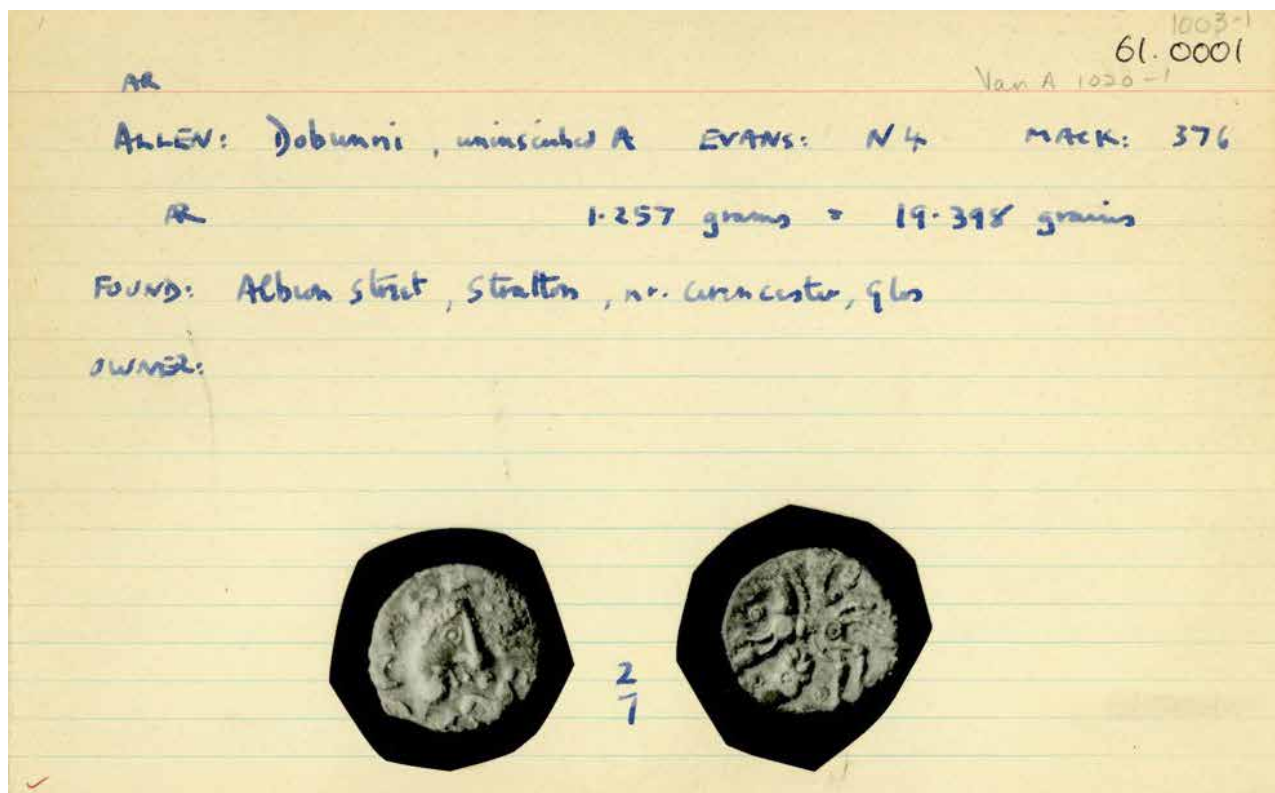 1003-1
61.0001
Van A 1020-1
AR
ALLEN: Dobunni, uninscribed A EVANS: N 4 MACK: 376
AR 1.257 grams = 19.398 grains
FOUND: Albion Street, Stratton, nr. Cirencester, Glos
OWNER:
2
7